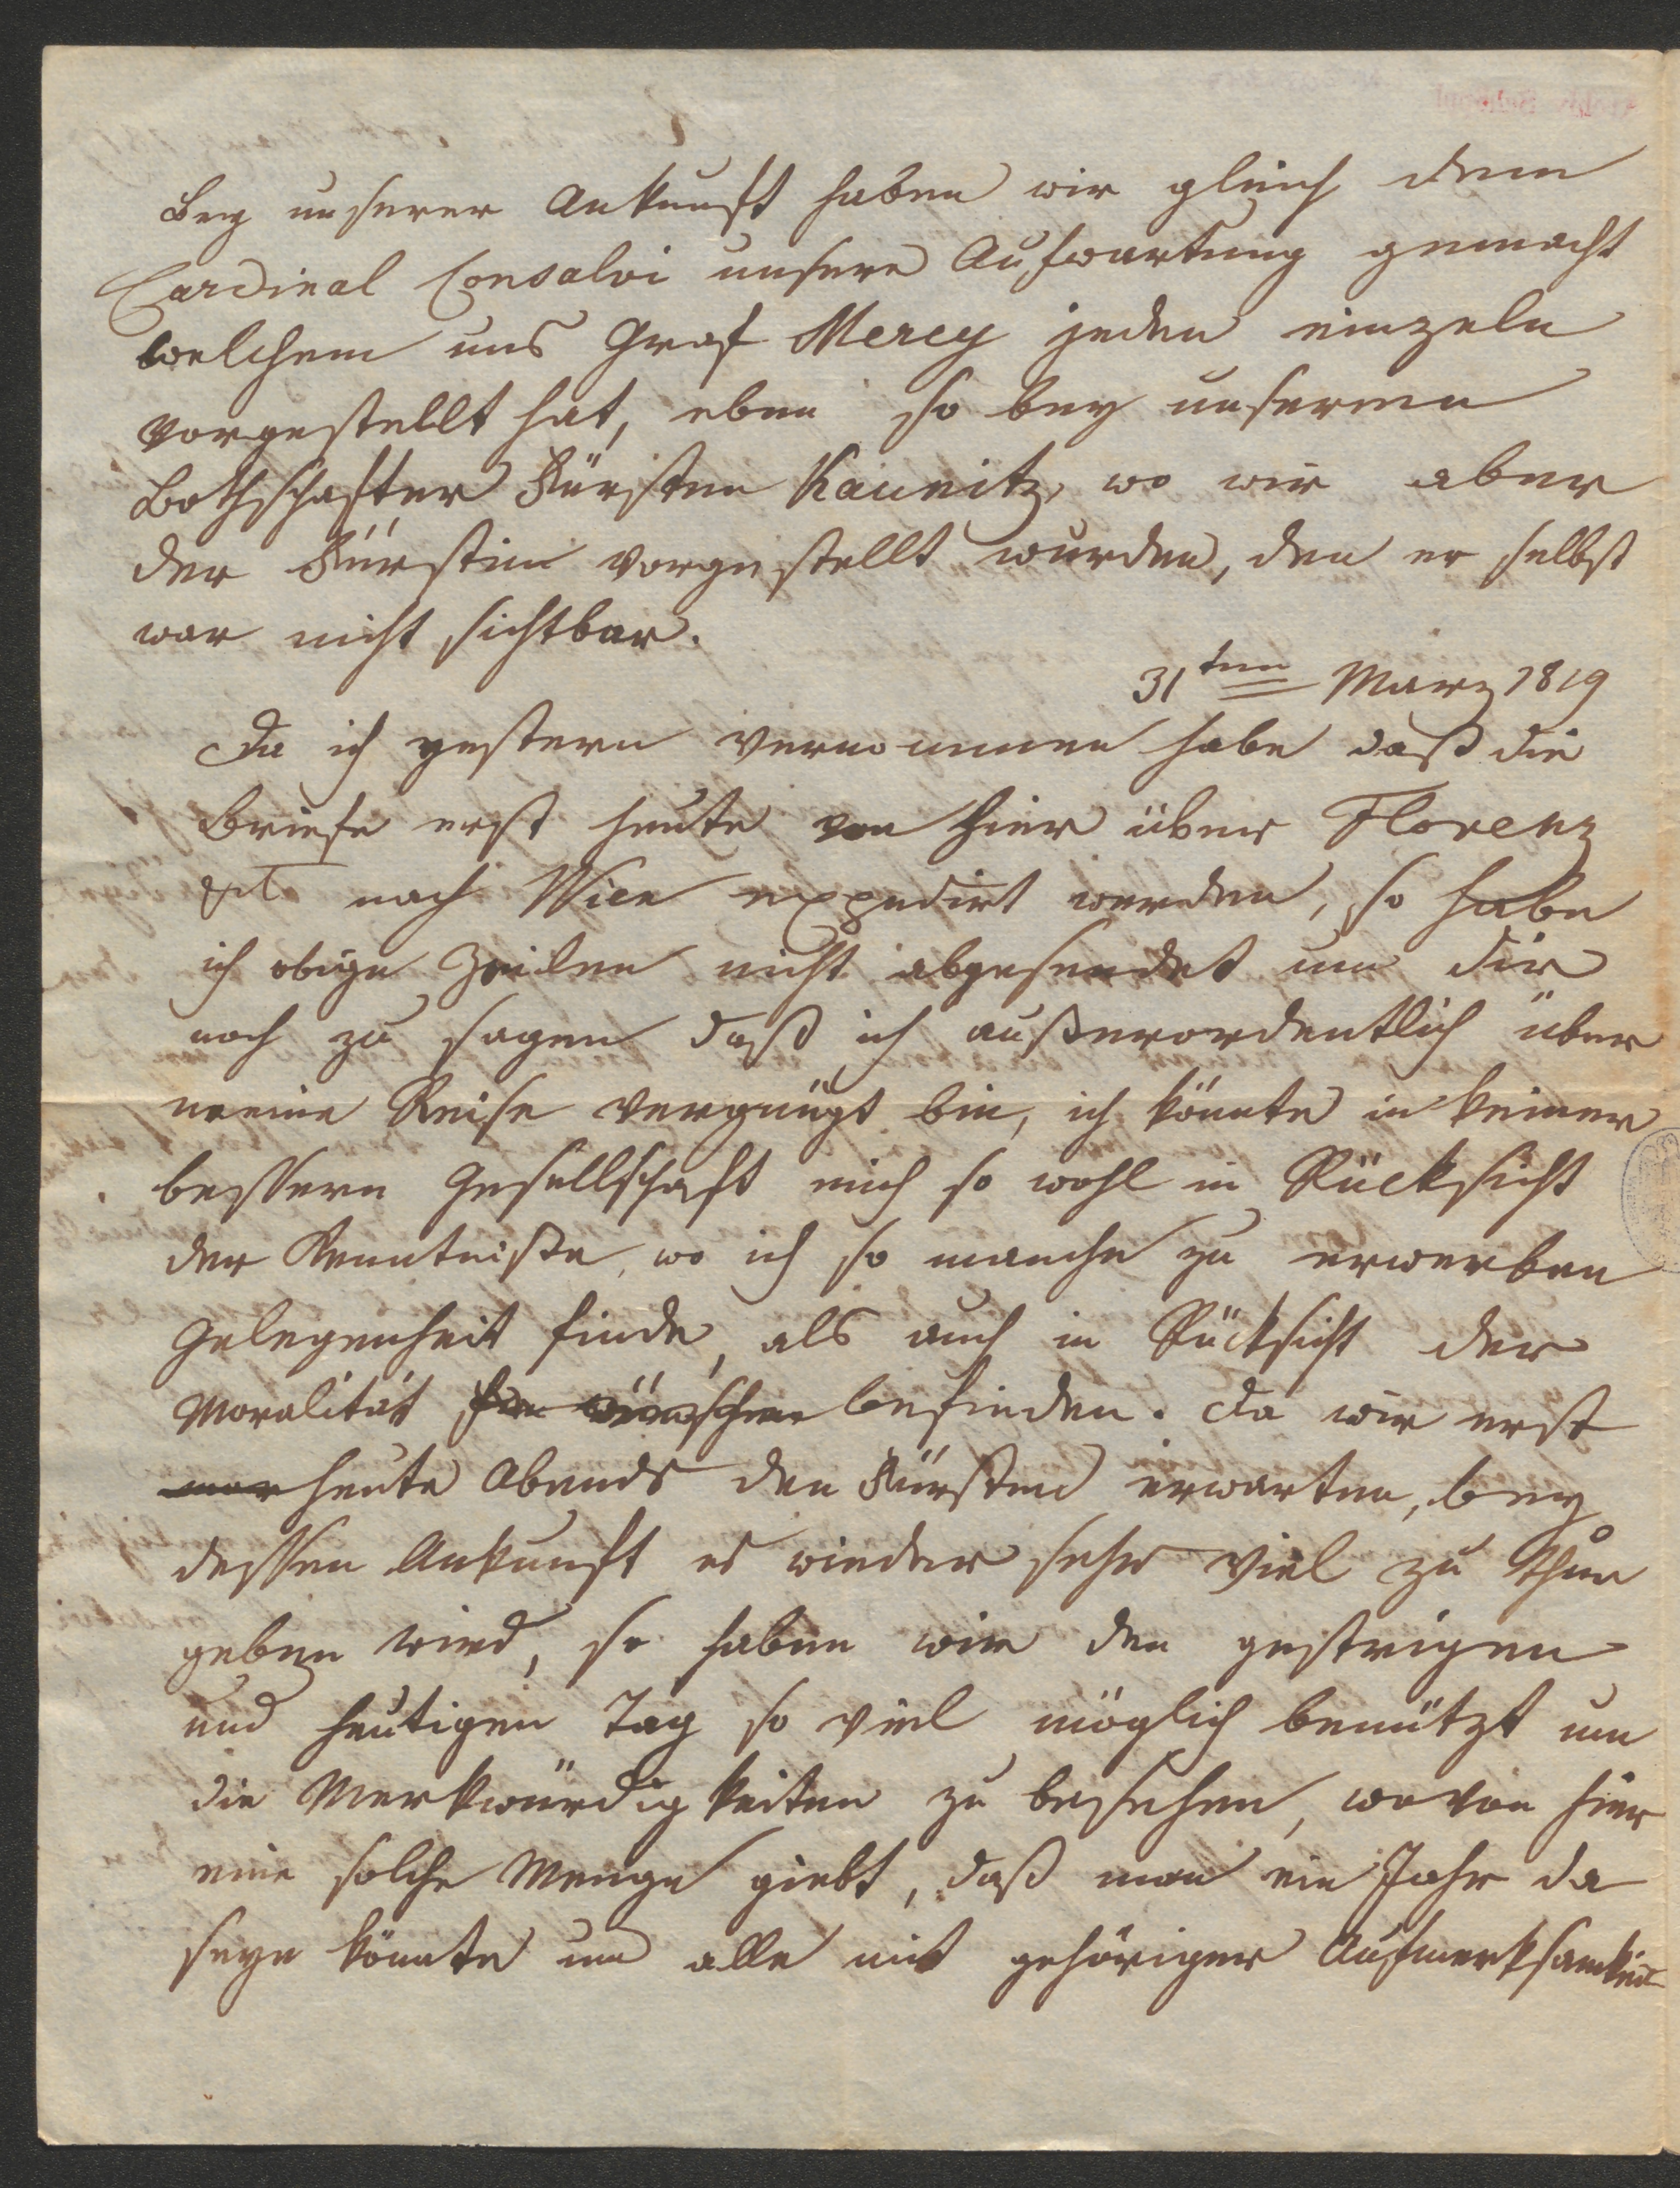 Bey unserer Ankunft haben wir gleich dem
Cardinal Consalvi unsere Aufwartung gemacht
welchem uns Graf Mercy jeden einzeln
vorgestellt hat, eben so bey unserem
Bothschafter Fürsten Kaunitz, wo wir aber
der Fürstin vorgestellt wurden, den er selbst
war nicht sichtbar.
31ten März 1819
Da ich gestern vernommen habe daß die
Briefe erst heute von hier über Florenz
nach Wien expedirt werden, so habe
ich obige Zeilen nicht abgesendet um dir
noch zu sagen daß ich außerordentlich über
meine Reise vergnügt bin, ich könnte in keiner
bessern Gesellschaft mich so wohl in Rücksicht
der Kenntniße, wo ich so manche zu erwerben
Gelegenheit finde, als auch in Rücksicht der
Moralität befinden. Da wir erst
heute Abends den Fürsten erwarten, bey
dessen Ankunft es wieder sehr viel zu thun
geben wird, so haben wir den gestrigen
und heutigen Tag so viel möglich benützt um
die Merkwürdigkeiten zu besehen, wovon hier
eine solche Menge giebt, daß man ein Jahr da
seyn könnte um alle mit gehöriger Aufmerksamkeit